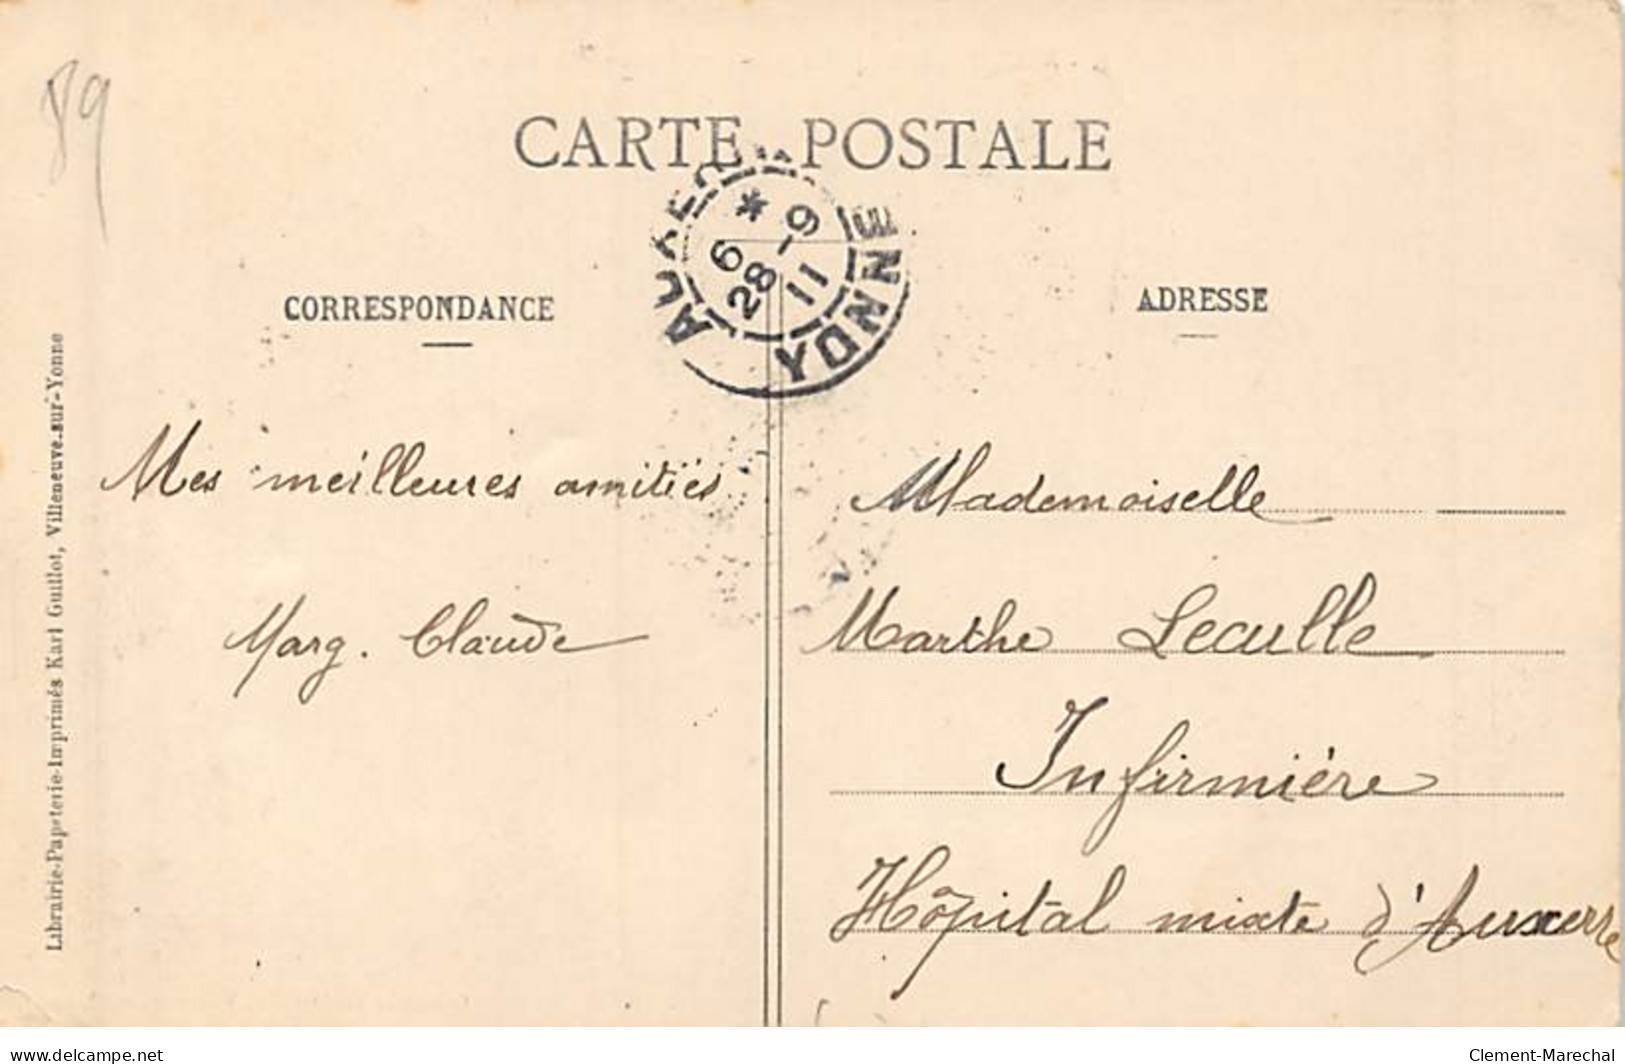 89
CARTE POSTALE
AUXERRE
6
28-9
11
YONNE
CORRESPONDANCE
Mes meilleures amitiés
Marg. Claude
ADRESSE
Mademoiselle
Marthe Leculle
Infirmière
Hôpital mixte d'Auxerre
Librairie-Papeterie-Imprimés Karl Guillot, Villeneuve-sur-Yonne
delcampe.net
Clement-Marechal